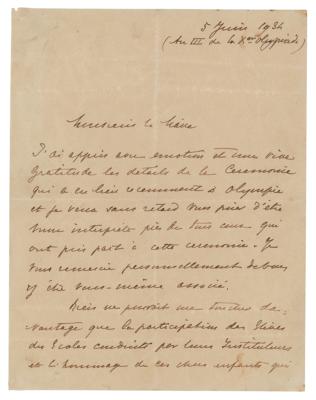 5 Juin 1934
(An III de la Xme Olympiade)
Monsieur le Maire
J'ai appris avec émotion et une vive
Gratitude les détails de la Cérémonie
qui a eu lieu récemment à Olympie
et je viens sans retard vous prier d'être
mon interprète près de tous ceux qui
ont pris part à cette cérémonie. Je
vous remercie personnellement de vous
y être vous-même associé.
Rien ne pouvait me toucher da-
vantage que la participation des Élèves
des Ecoles conduits par leurs Instituteurs
et l'hommage de ces chers enfants qui